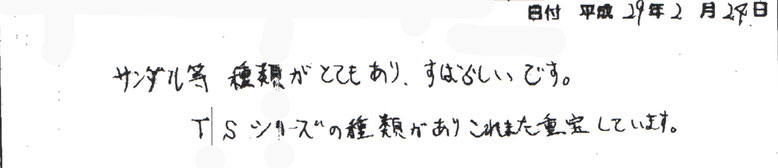 日付 平成 29年 2月 24日
サンダル等 種類がとてもあり、すばらしいです。
T/Sシリーズの種類がありこれまた重宝しています。